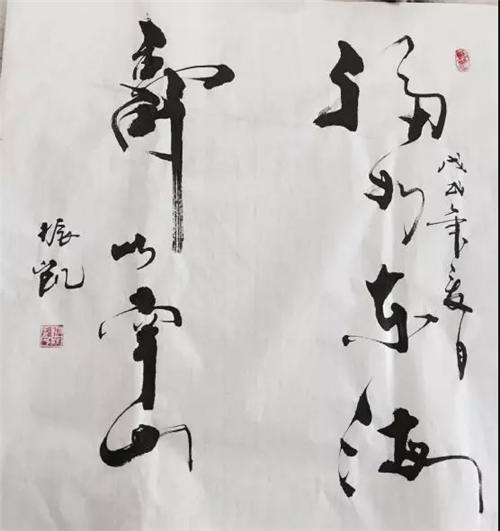 戊戌年夏月
福如东海
寿比南山
振凯